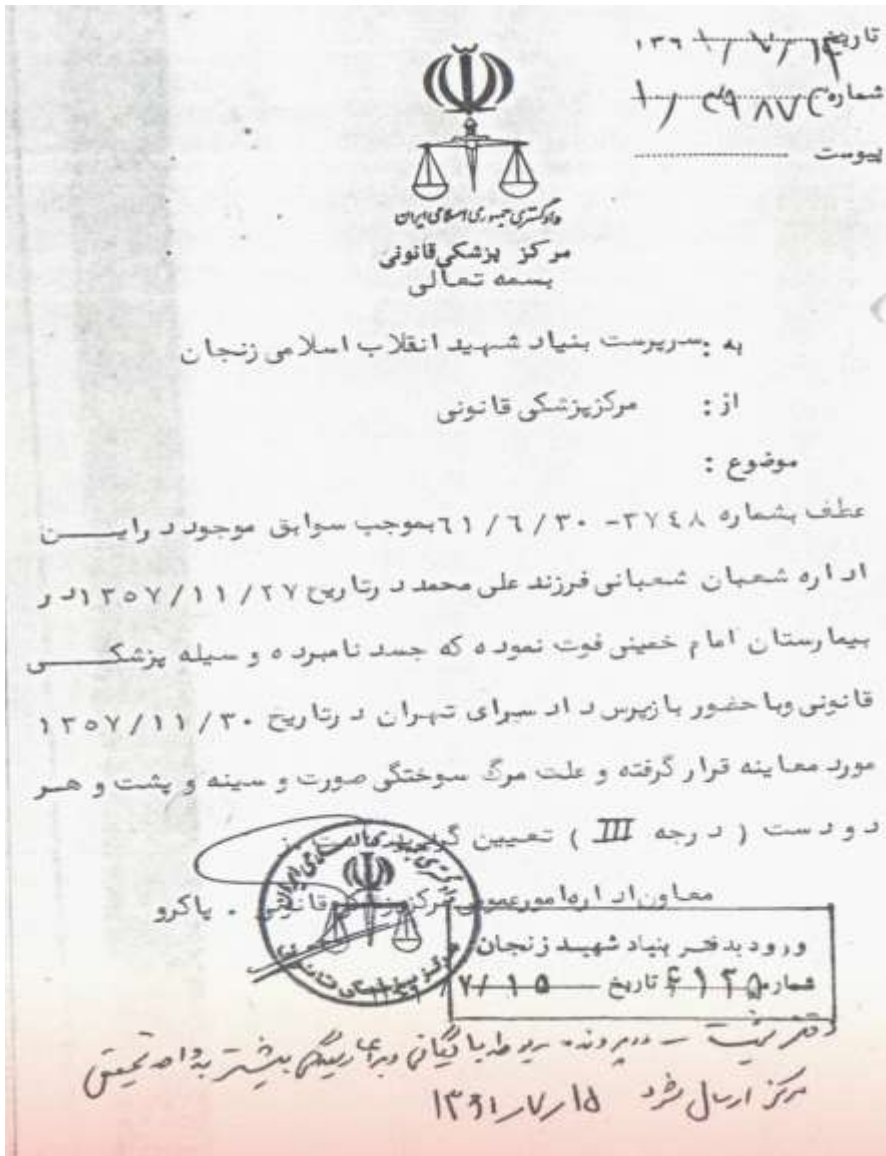 تاریخ ۱۳۶۱/۷/۱۴
شماره ۱/
پیوست
دادگستری جمهوری اسلامی ایران
مرکز پزشکی قانونی
بسمه تعالی
به : سرپرست بنیاد شهید انقلاب اسلامی زنجان
از : مرکز پزشکی قانونی
موضوع :
عطف بشماره ۳۷۴۸ - ۶۱/۶/۳۰ بموجب سوابق موجود در این
اداره شعبان شعبانی فرزند علی محمد در تاریخ ۱۳۵۷/۱۱/۲۷ در
بیمارستان امام خمینی فوت نموده که جسد نامبرده وسیله پزشکی
قانونی و با حضور بازپرس دادسرای تهران در تاریخ ۱۳۵۷/۱۱/۳۰
مورد معاینه قرار گرفته و علت مرگ سوختگی صورت و سینه و پشت و هر
دو دست ( درجه III ) تعیین
معاون اداره امور عمومی مرکز پزشکی قانونی . پاکرو
ورود بدفتر بنیاد شهید زنجان
شماره تاریخ ۷/۱۵
مرکز ارسال شود ۱۳۶۱/۷/۱۵